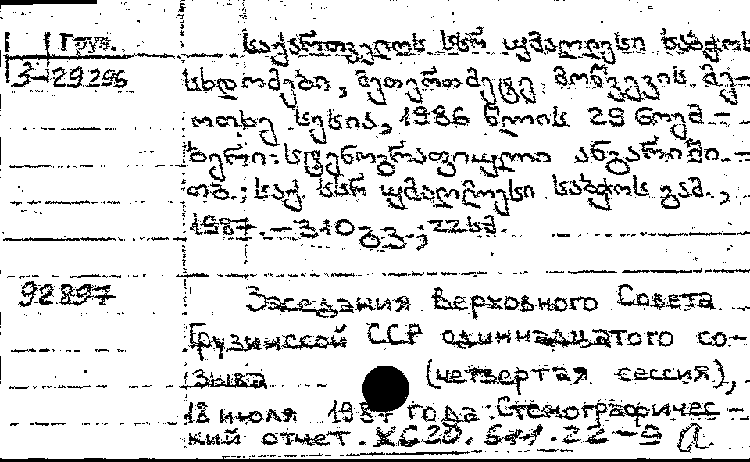 Груз.
საქართველოს სსრ უმაღლესი საბჭოს
3-29296
სხდომები, მეთერთმეტე მოწვევის მე-
ოთხე სესია, 1986 წლის 29 ნოემ-
ბერი: სტენოგრაფიული ანგარიში. -
თბ.: საქ. სსრ უმაღლესი საბჭოს გამ.,
1987. - 310 გვ.; 22 სმ.
92897
Заседания Верховного Совета
Грузинской ССР одиннадцатого со-
зыва (четвертая сессия),
18 июля 1987 года: Стенографичес-
кий отчет. Х620.